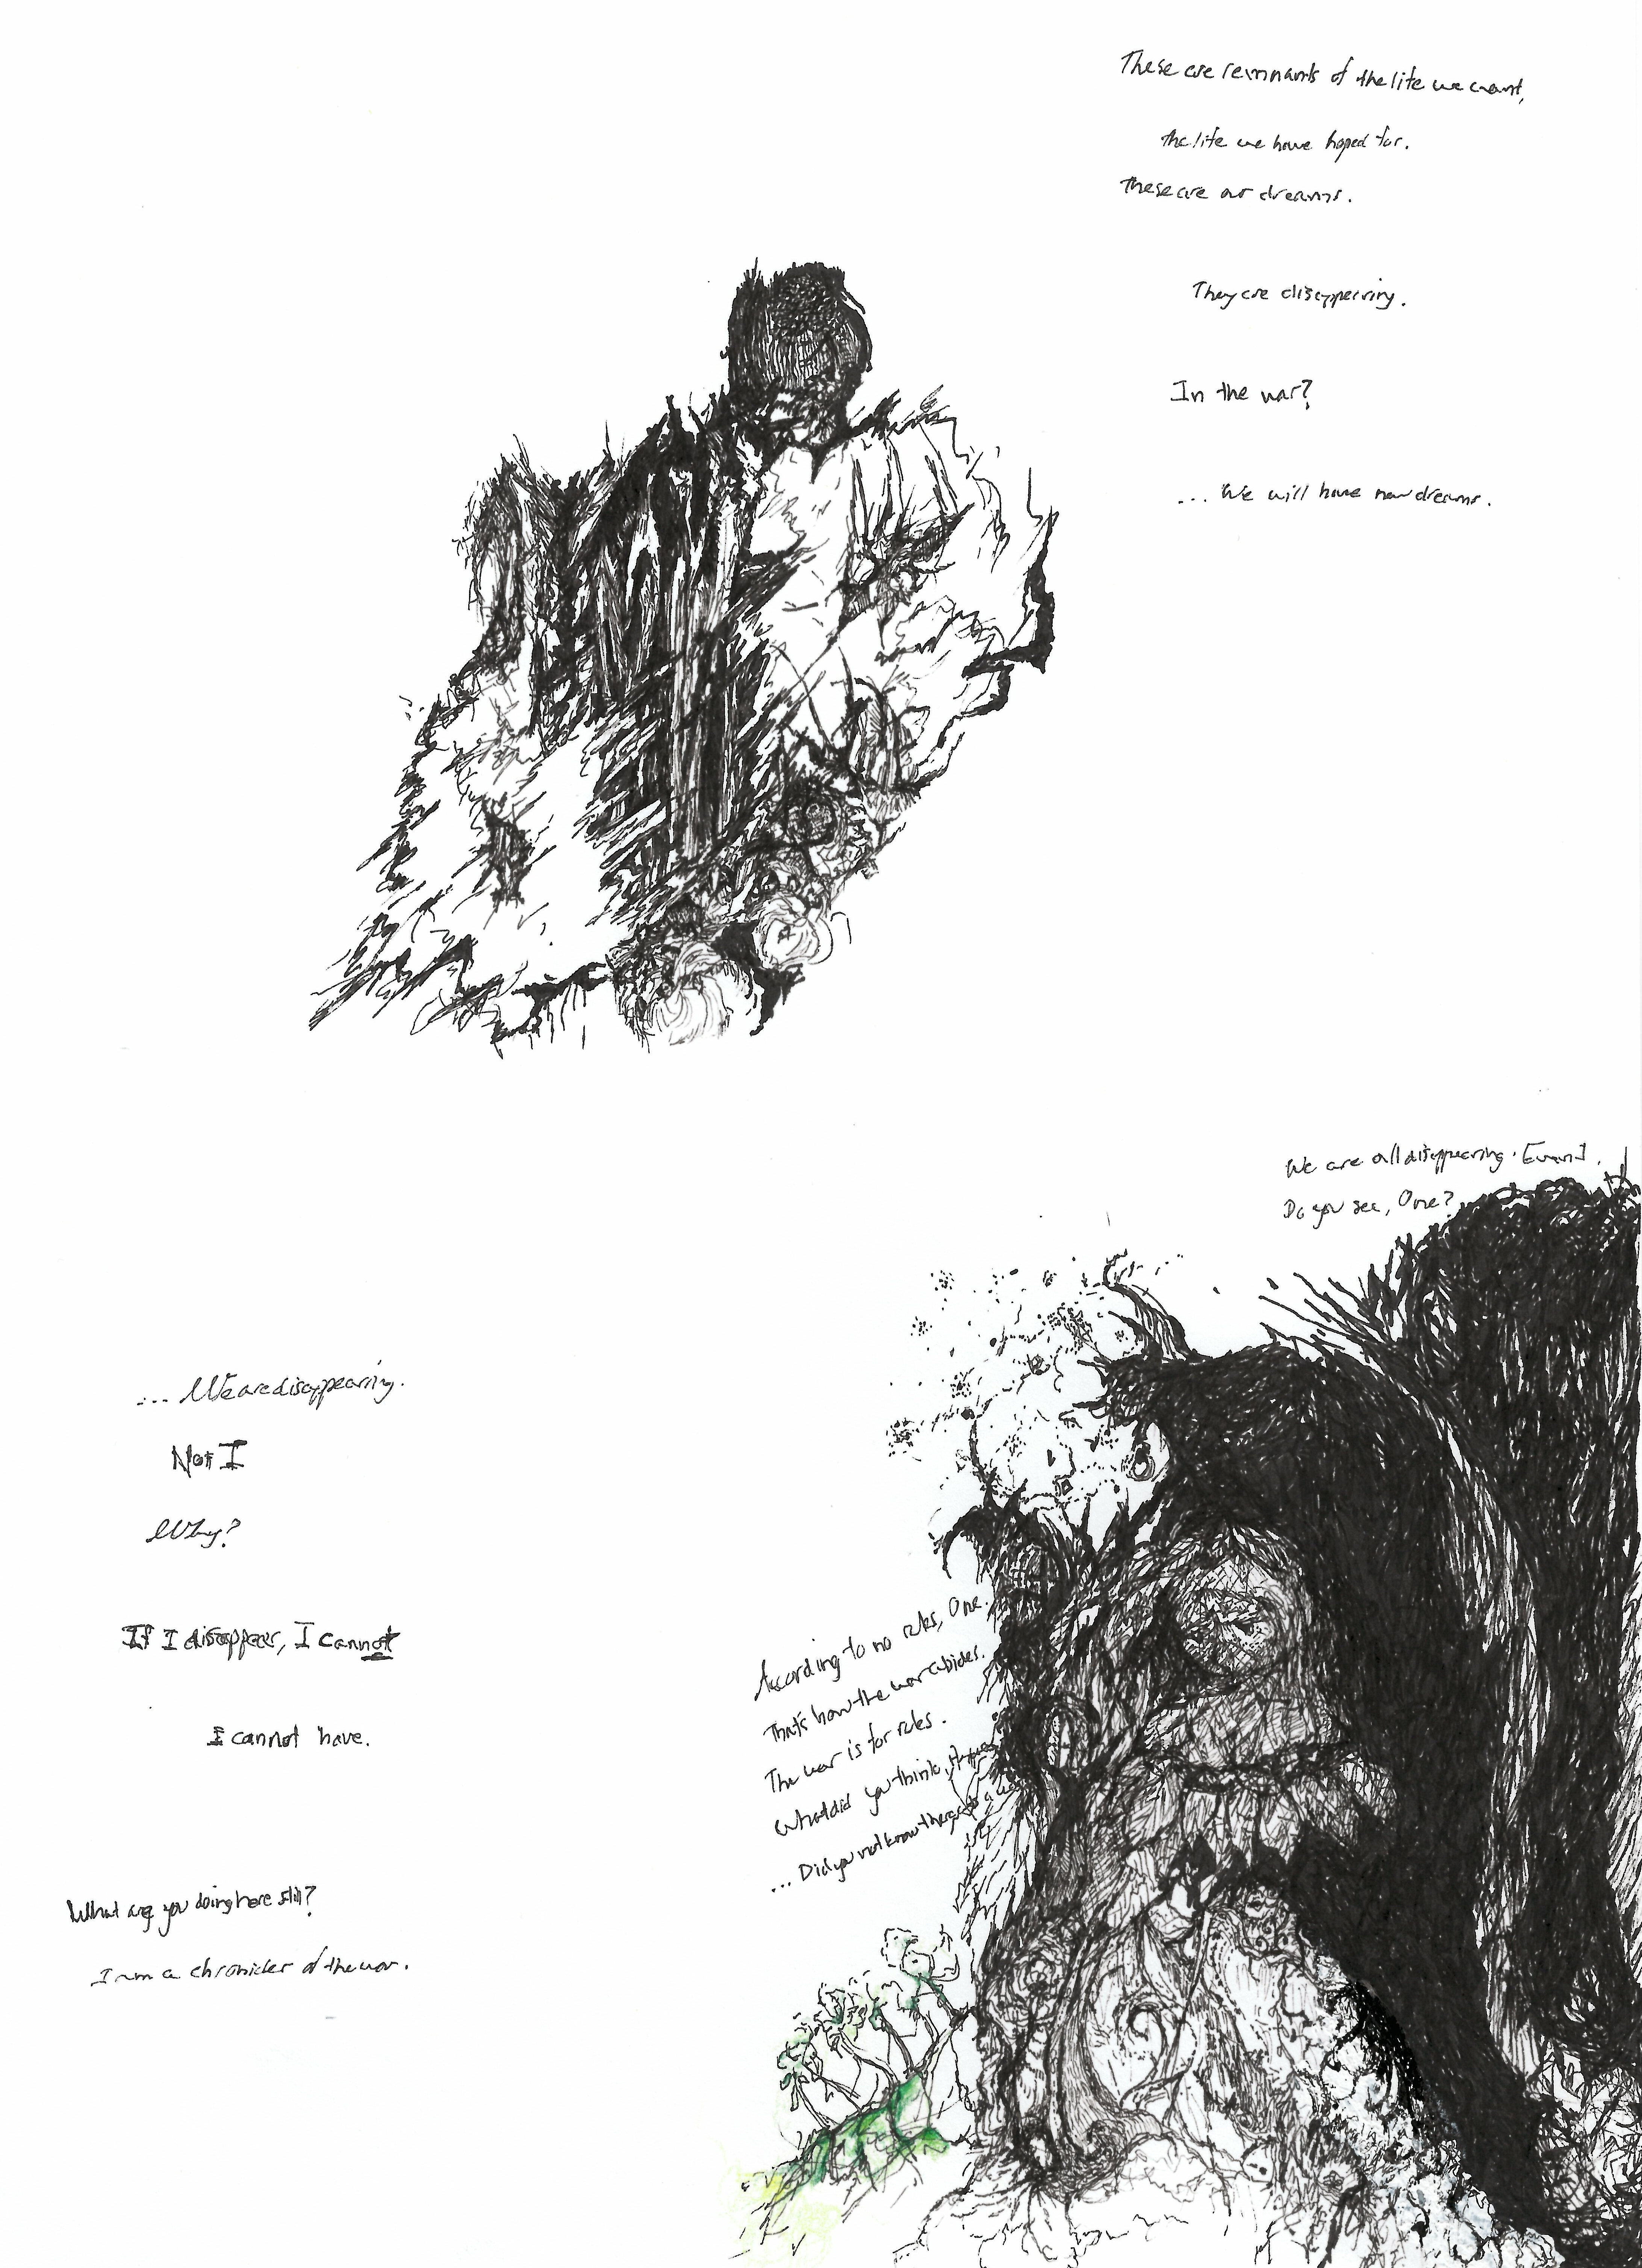 These are remnants of the life we want,
the life we have hoped for.
These are our dreams.
They are disappearing.
In the war?
... We will have new dreams.
We are all disappearing.
Do you see, One?
... We are disappearing.
Not I
Why?
If I disappear, I cannot
I cannot have.
According to no rules, One.
That's how the war abides.
The war is for rules.
What did you think,
... Did you not know
What are you doing here still?
I am a chronicler of the war.